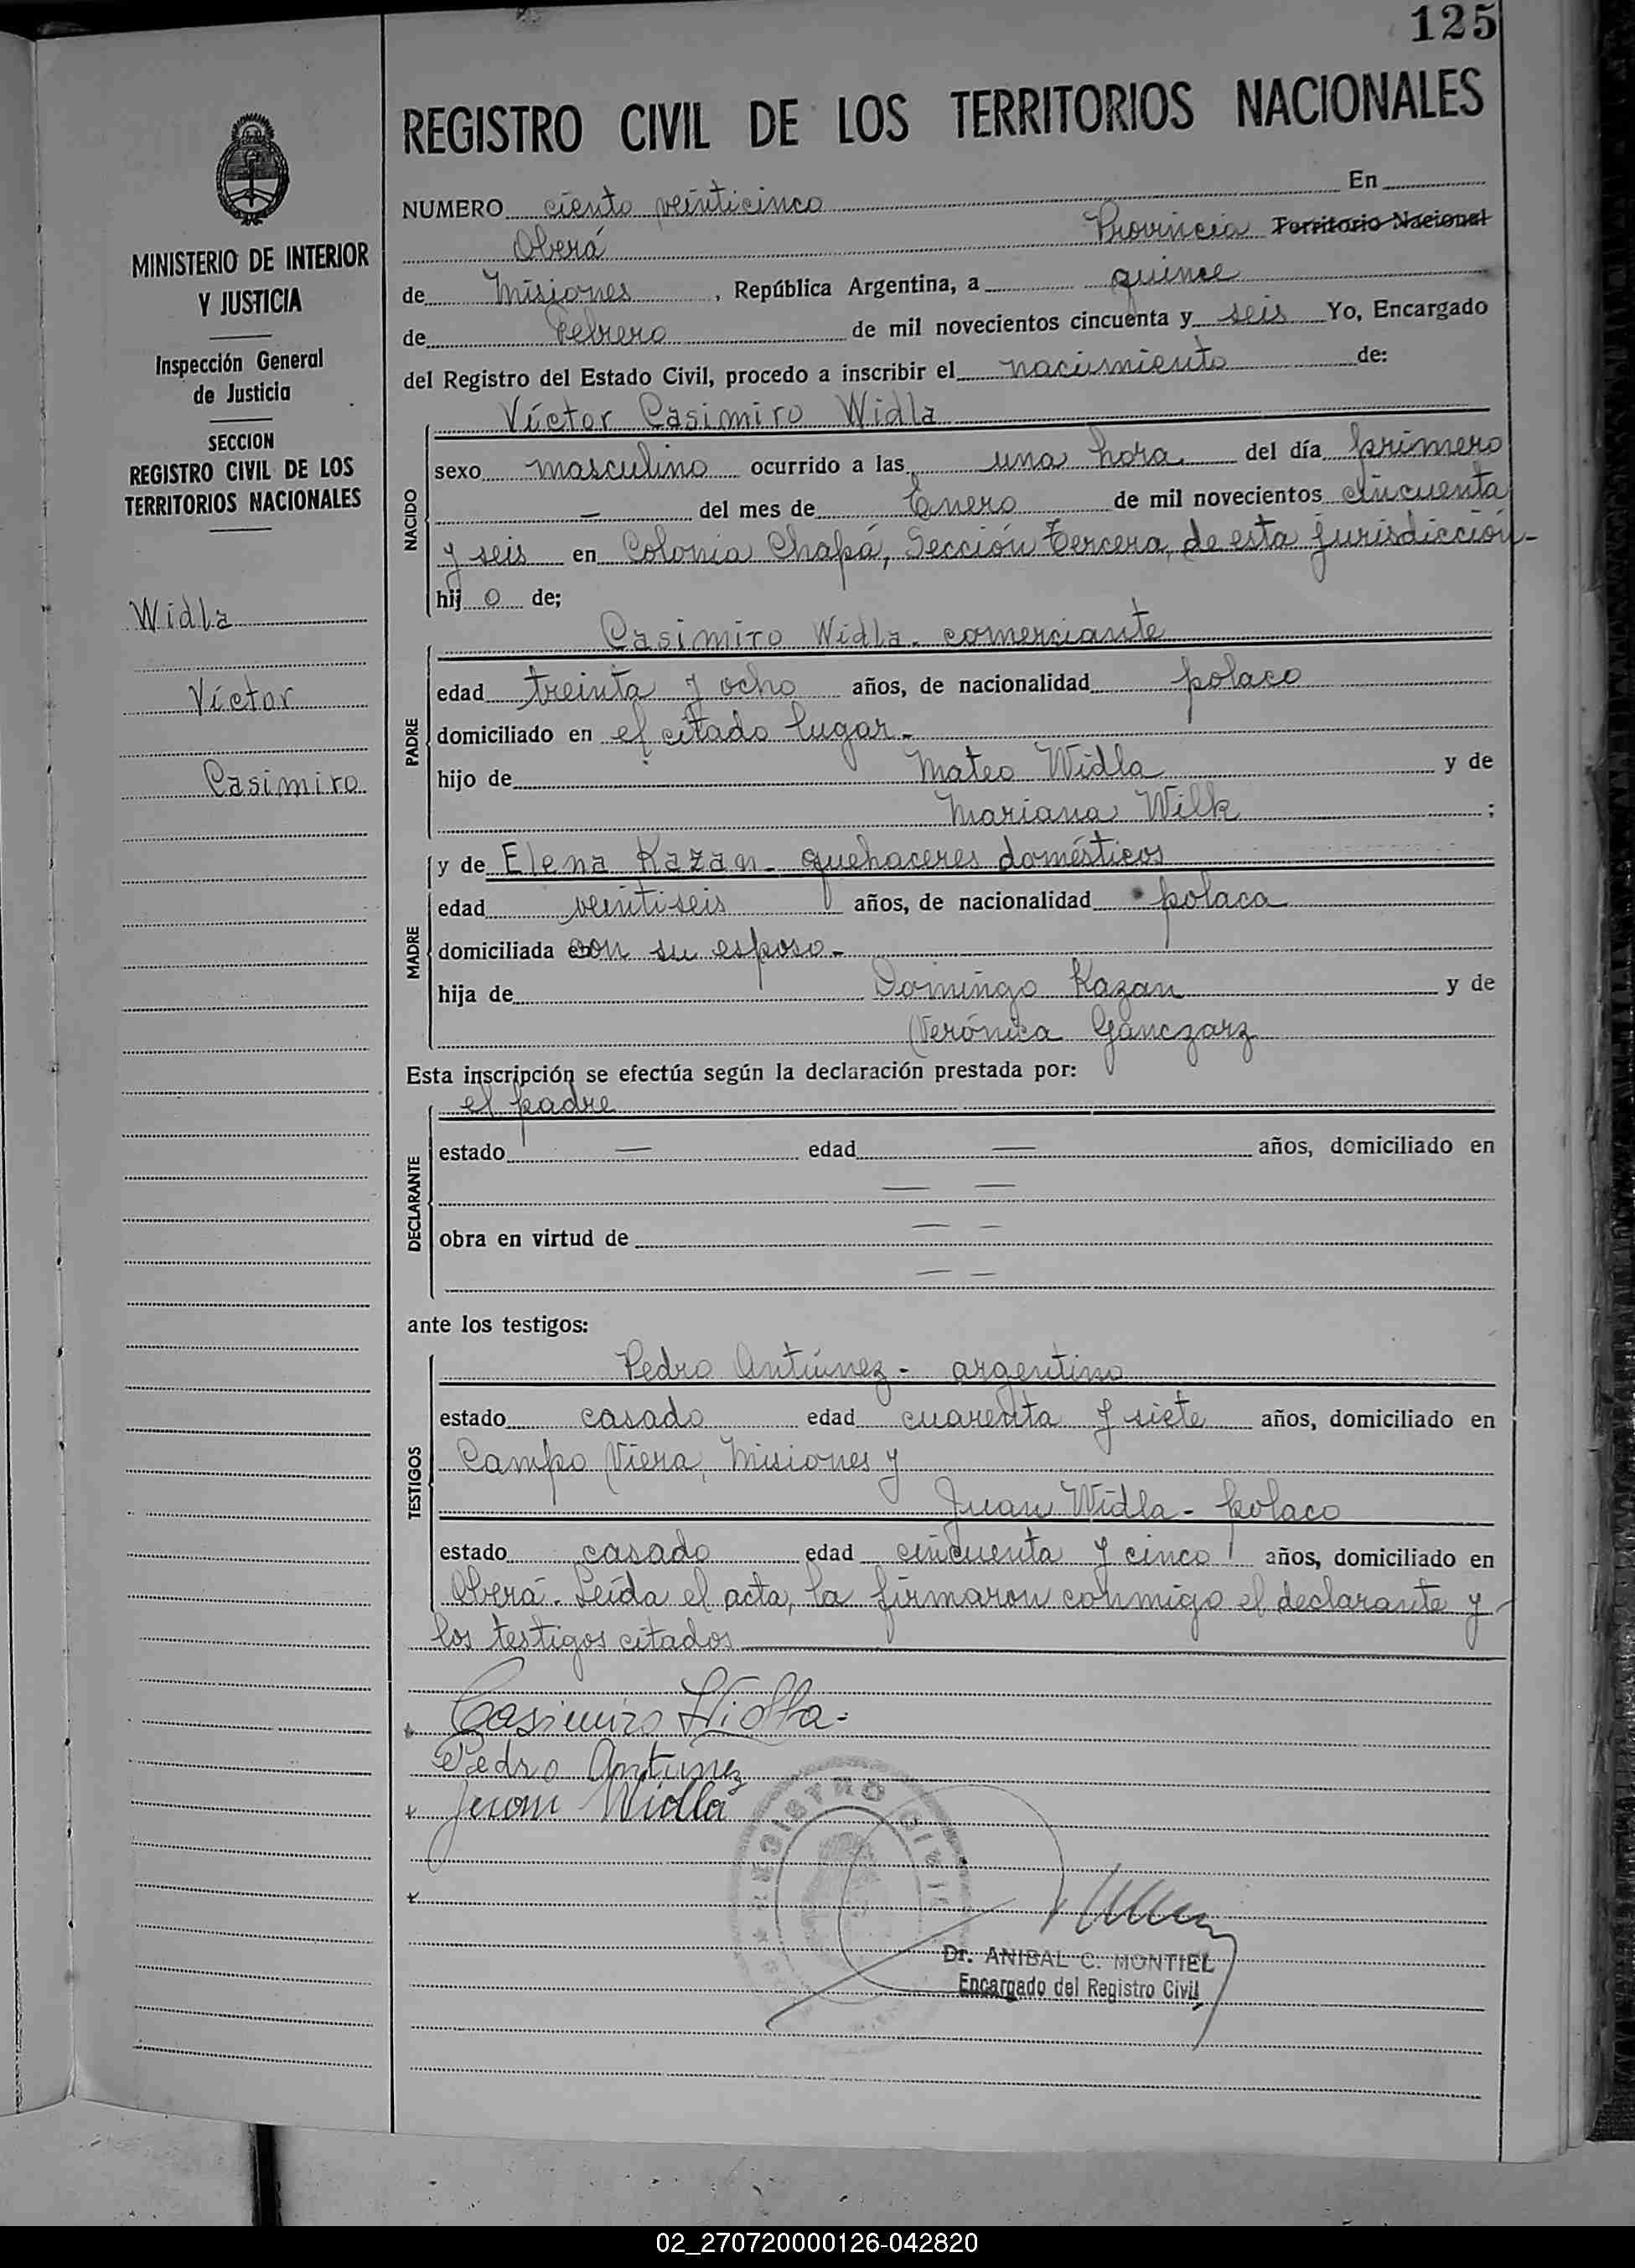 125
REGISTRO CIVIL DE LOS TERRITORIOS NACIONALES
MINISTERIO DE INTERIOR
Y JUSTICIA
Inspección General
de Justicia
SECCION
REGISTRO CIVIL DE LOS
TERRITORIOS NACIONALES
Widla
Víctor
Casimiro
NUMERO ciento veinticinco En
Oberá Provincia Territorio Nacional
de Misiones, República Argentina, a quince
de Febrero de mil novecientos cincuenta y seis Yo, Encargado
del Registro del Estado Civil, procedo a inscribir el nacimiento de:
NACIDO
Víctor Casimiro Widla
sexo masculino ocurrido a las una hora del día primero
— del mes de Enero de mil novecientos cincuenta
y seis en Colonia Chapá, Sección Tercera, de esta jurisdicción-
hij o de;
PADRE
Casimiro Widla - comerciante
edad treinta y ocho años, de nacionalidad polaco
domiciliado en el citado lugar-
hijo de Mateo Widla y de
Mariana Wilk ;
MADRE
y de Elena Kazan - quehaceres domésticos
edad veintiseis años, de nacionalidad polaca
domiciliada con su esposo-
hija de Domingo Kazan y de
Verónica Ganczarz
Esta inscripción se efectúa según la declaración prestada por:
DECLARANTE
el padre
estado — edad — años, domiciliado en
— —
obra en virtud de — —
— —
ante los testigos:
TESTIGOS
Pedro Antúnez - argentino
estado casado edad cuarenta y siete años, domiciliado en
Campo Viera, Misiones y
Juan Widla - polaco
estado casado edad cincuenta y cinco años, domiciliado en
Oberá. Leída el acta, la firmaron conmigo el declarante y
los testigos citados
Casimiro Widla
Pedro Antunez
Juan Widla
REGISTRO CIVIL
Dr. ANIBAL C. MONTIEL
Encargado del Registro Civil
02_270720000126-042820